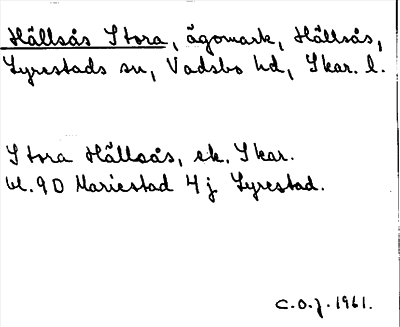 Hällsås Stora, ägomark, Hällsås,
Lyrestads sn, Vadsbo hd, Skar. l.
Stora Hällsås, ek. Skar.
bl. 9D Mariestad 4j Lyrestad.
C.O.J. 1961.